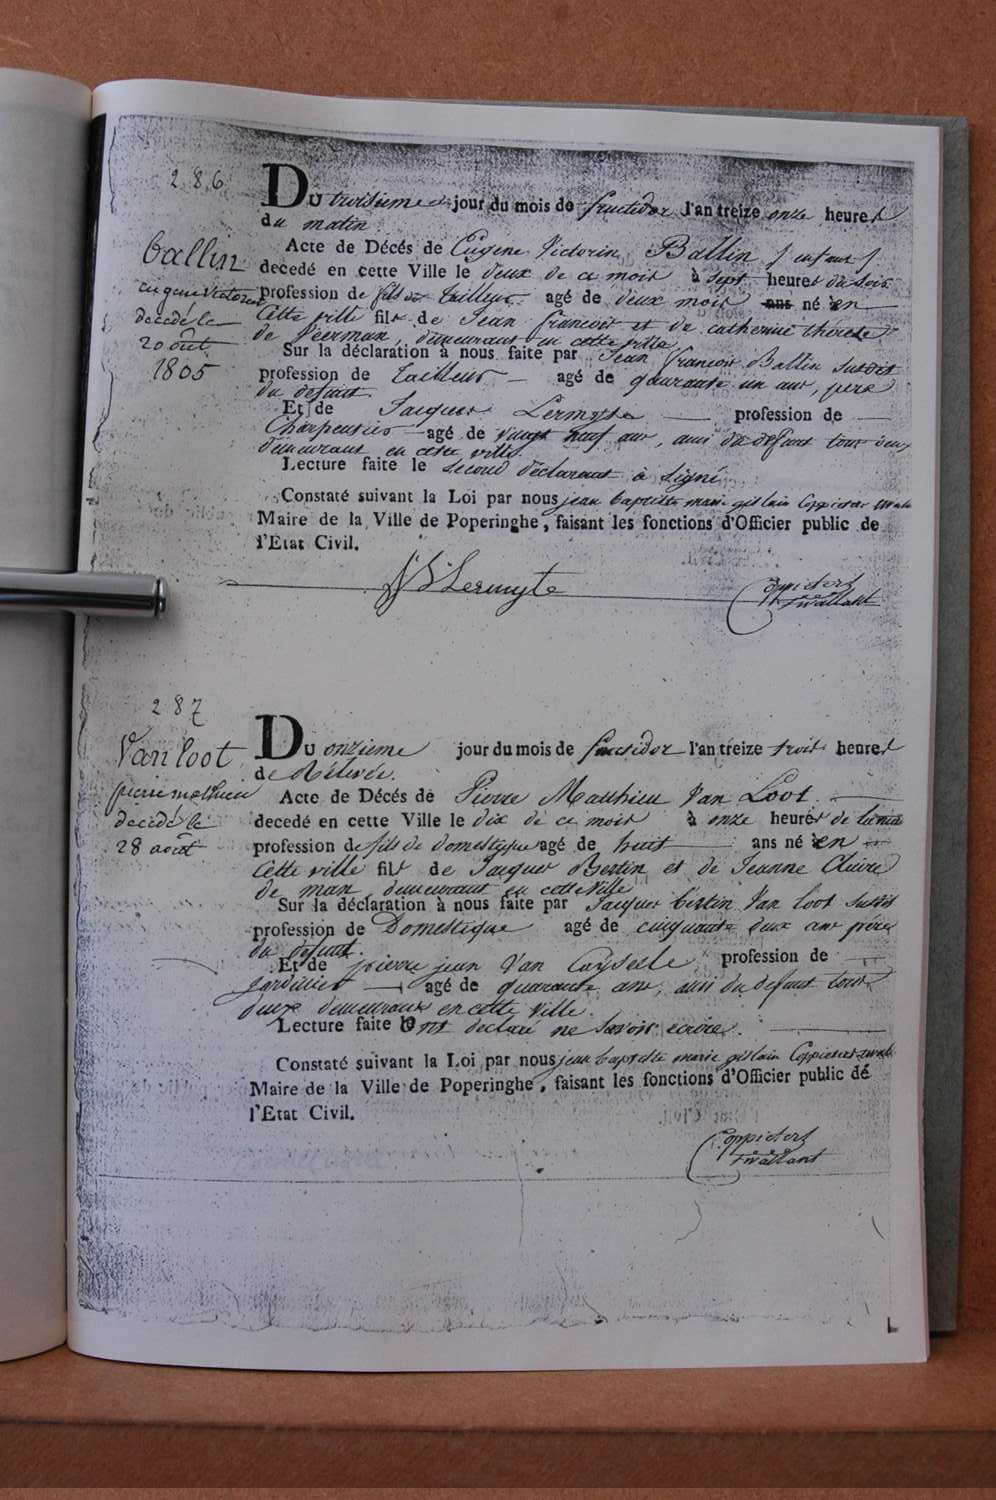 286
Du troisieme jour du mois de fructidor l'an treize onze heures
du matin
Acte de Décés de Eugene Victorin Ballin / enfant /
decedé en cette Ville le deux de ce mois à sept heures du soir
profession de fils de tailleur agé de deux mois ans né en
Cette ville fils de Jean francois et de catherine therese
de Peerman, demeurant en cette ville
Sur la déclaration à nous faite par Jean francois Ballin susdit
profession de tailleur agé de quarante un ans, pere
du defunt.
Et de Jacques Lermyte profession de
Charpentier agé de vingt neuf ans, ami du defunt tous deux
demeurant en cette ville.
Lecture faite le second declarant à signé
Constaté suivant la Loi par nous jean baptiste marie gislain Coppieters
Maire de la Ville de Poperinghe, faisant les fonctions d'Officier public de
l'Etat Civil.
Lermyte
Coppieters
t'wallant
ballin
eugene victorin
decede le
20 août
1805
287
Du onzieme jour du mois de fructidor l'an treize trois heures
de Rélevée.
Acte de Décés de Pierre Matthieu Van Loot
decedé en cette Ville le dix de ce mois à onze heures de
profession de fils de domestique agé de huit ans né en
Cette ville fils de Jacques Bertin et de Jeanne Claire
de man, demeurant en cette ville
Sur la déclaration à nous faite par Jacques bertin Van loot susdit
profession de Domestique agé de cinquante deux ans pére
du defunt.
Et de pierre jean Van Cayseele profession de
Jardinier agé de quarante ans, ami du defunt tous
deux demeurant en cette ville.
Lecture faite ont declaré ne savoir ecrire.
Constaté suivant la Loi par nous jean baptiste marie gislain Coppieters
Maire de la Ville de Poperinghe, faisant les fonctions d'Officier public dé
l'Etat Civil.
Coppieters
t'wallant
Van loot
pierre mathieu
decede le
28 août